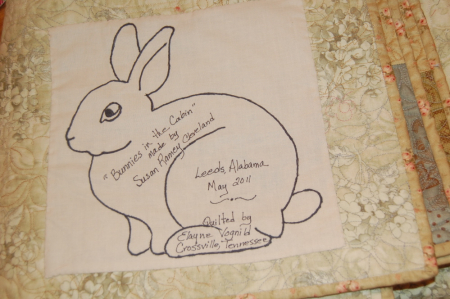 "Bunnies in the Cabin"
made by
Susan Ramey Cleveland
Leeds, Alabama
May 2011
Quilted by
Elayne Vognild
Crossville, Tennessee